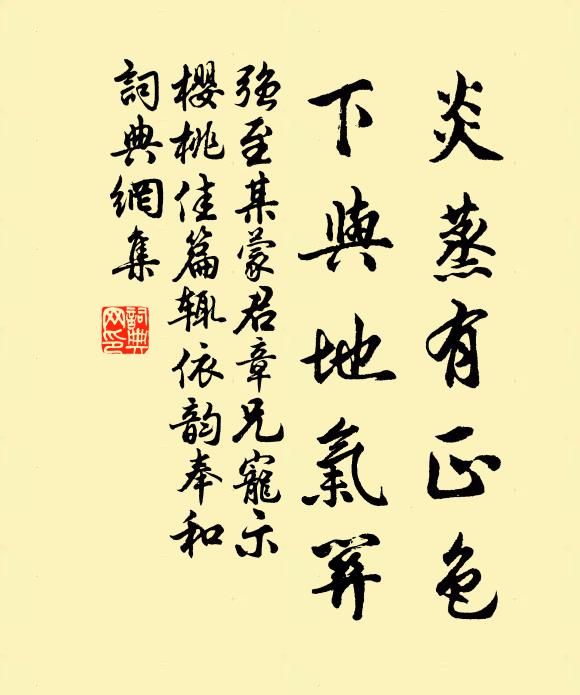 炎蒸有正色
下與地氣
强至某蒙君章兄寵示
櫻桃佳篇辄依韵奉和
詞典網集
詞典
网印